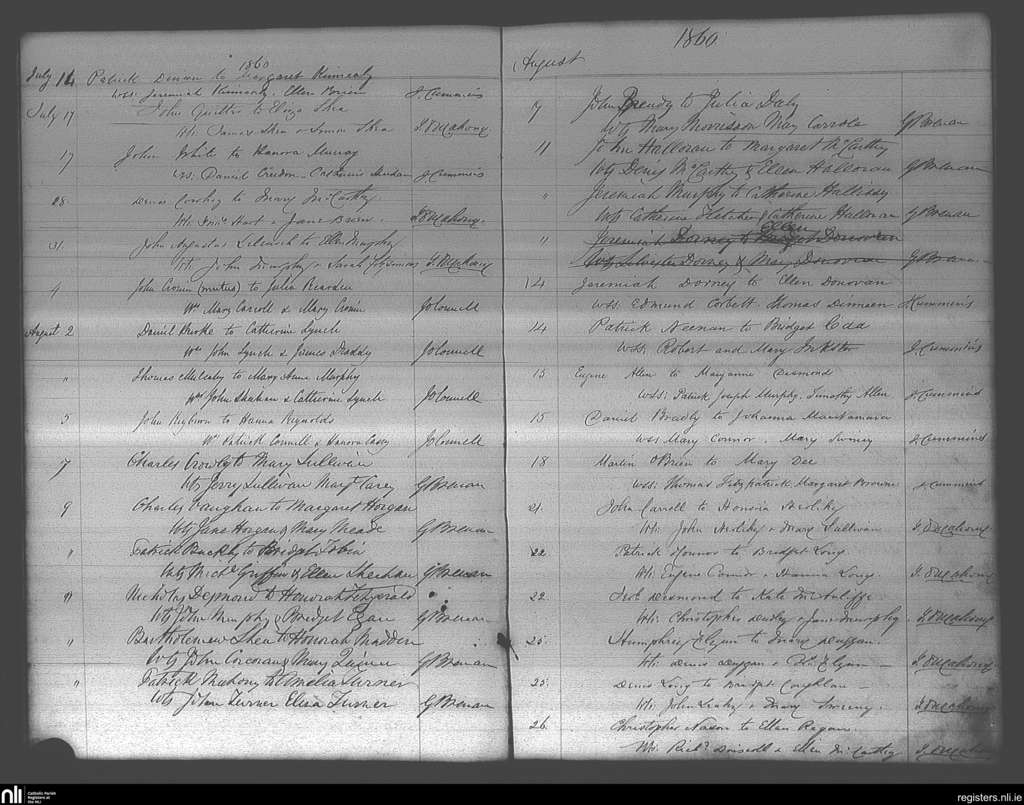 1860
July 14 Patrick to Margaret Kinnealy
Wss: Jeremiah Ellen Brien J. Cummins
July 17 John to Eliza Shea
Wt: James Shea & Simon Shea J. O'Mahony
17 John White to Hanora Murray
Wss. Daniel Creedon - Catherine J. Cummins
28 Denis to Mary McCarthy
Wt: & Jane Brien J. O'Mahony
31 John Augustus to Ellen Murphy
Wt. John Murphy & Sarah Fitzsimons J. O'Mahony
4 John Cronin to Julia Riordan
Wss Mary Carroll & Mary Cronin J. O'Connell
August 2 Daniel to Catherine Lynch
Wss John Lynch & James Draddy J O'Connell
" Thomas Mulcahy to Mary Anne Murphy
Wss John & Catherine Lynch J O'Connell
5 John to Hanna Reynolds
Ws Patrick Connell & Hanora Casey J O'Connell
7 Charles Crowly to Mary Sullivan
Wts Jerry Sullivan Margt Carey G Brenan
9 Charles Vaughan to Margaret Horgan
Wts Jane Horgan & Mary Meade G Brenan
" Patrick Buckly to Bridget Tobin
Wts Michl Griffin & Ellen Sheehan G Brenan
" Nicholas Desmond to Honorah Fitzgerald
Wts John Murphy & Bridget Egan G Brenan
" Bartholemew Shea to Honorah Madden
Wts John Corcoran & Mary G Brenan
" Patrick Mahony to Amelia Turner
Wts John Turner Eliza Turner G Brenan
1860
August
7 John to Julia Daly
Wts Mary Morrisson May Carrole G Brenan
11 John Halloran to Margaret McCarthy
Wts Denis McCarthy & Ellen Halloran G Brenan
" Jeremiah Murphy to Catherine Hallissy
Wts Catherine Fletcher & Catherine Halloran G Brenan
Ellen
" Jeremiah Dorney to Donovan
Wts Sylvester Dorney & Mary Donovan G Brenan
14 Jeremiah Dorney to Ellen Donovan
Wss: Edmund Corbett Thomas Dinneen J. Cummins
14 Patrick Neenan to Bridget
Wss: Robert and Mary Inkster J. Cummins
15 Eugene Allen to Maryanne Desmond
Wss: Patrick Joseph Murphy. Timothy Allen J. Cummins
15 Daniel Bradly to Johanna Macnamara
Wss Mary Connor. Mary J. Cummins
18 Martin O'Brien to Mary Dee
Wss: Thomas Fitzpatrick Margaret Browne J. Cummins
21 John Carroll to Honora
Wt: John & Mary Sullivan J. O'Mahony
22 Patrick Connor to Bridget Long
Wt: Eugene Connor & Hanna Long. J. O'Mahony
22. Desmond to Kate McAuliffe
Wt: Christopher & Jane Murphy J. O'Mahony
25. Humphrey Flynn to Mary Duggan.
Wt: Denis Duggan & Flynn — J. O'Mahony
25. Denis Long to Bridget Coughlan —
Wt: John Leahy & Mary Sweeny. J. O'Mahony
26 Christopher to Ellen Regan.
Wt: Richd. Driscoll & Ellen McCarthy J. O'Mahony
nli Catholic Parish
Registers at
the NLI
registers.nli.ie